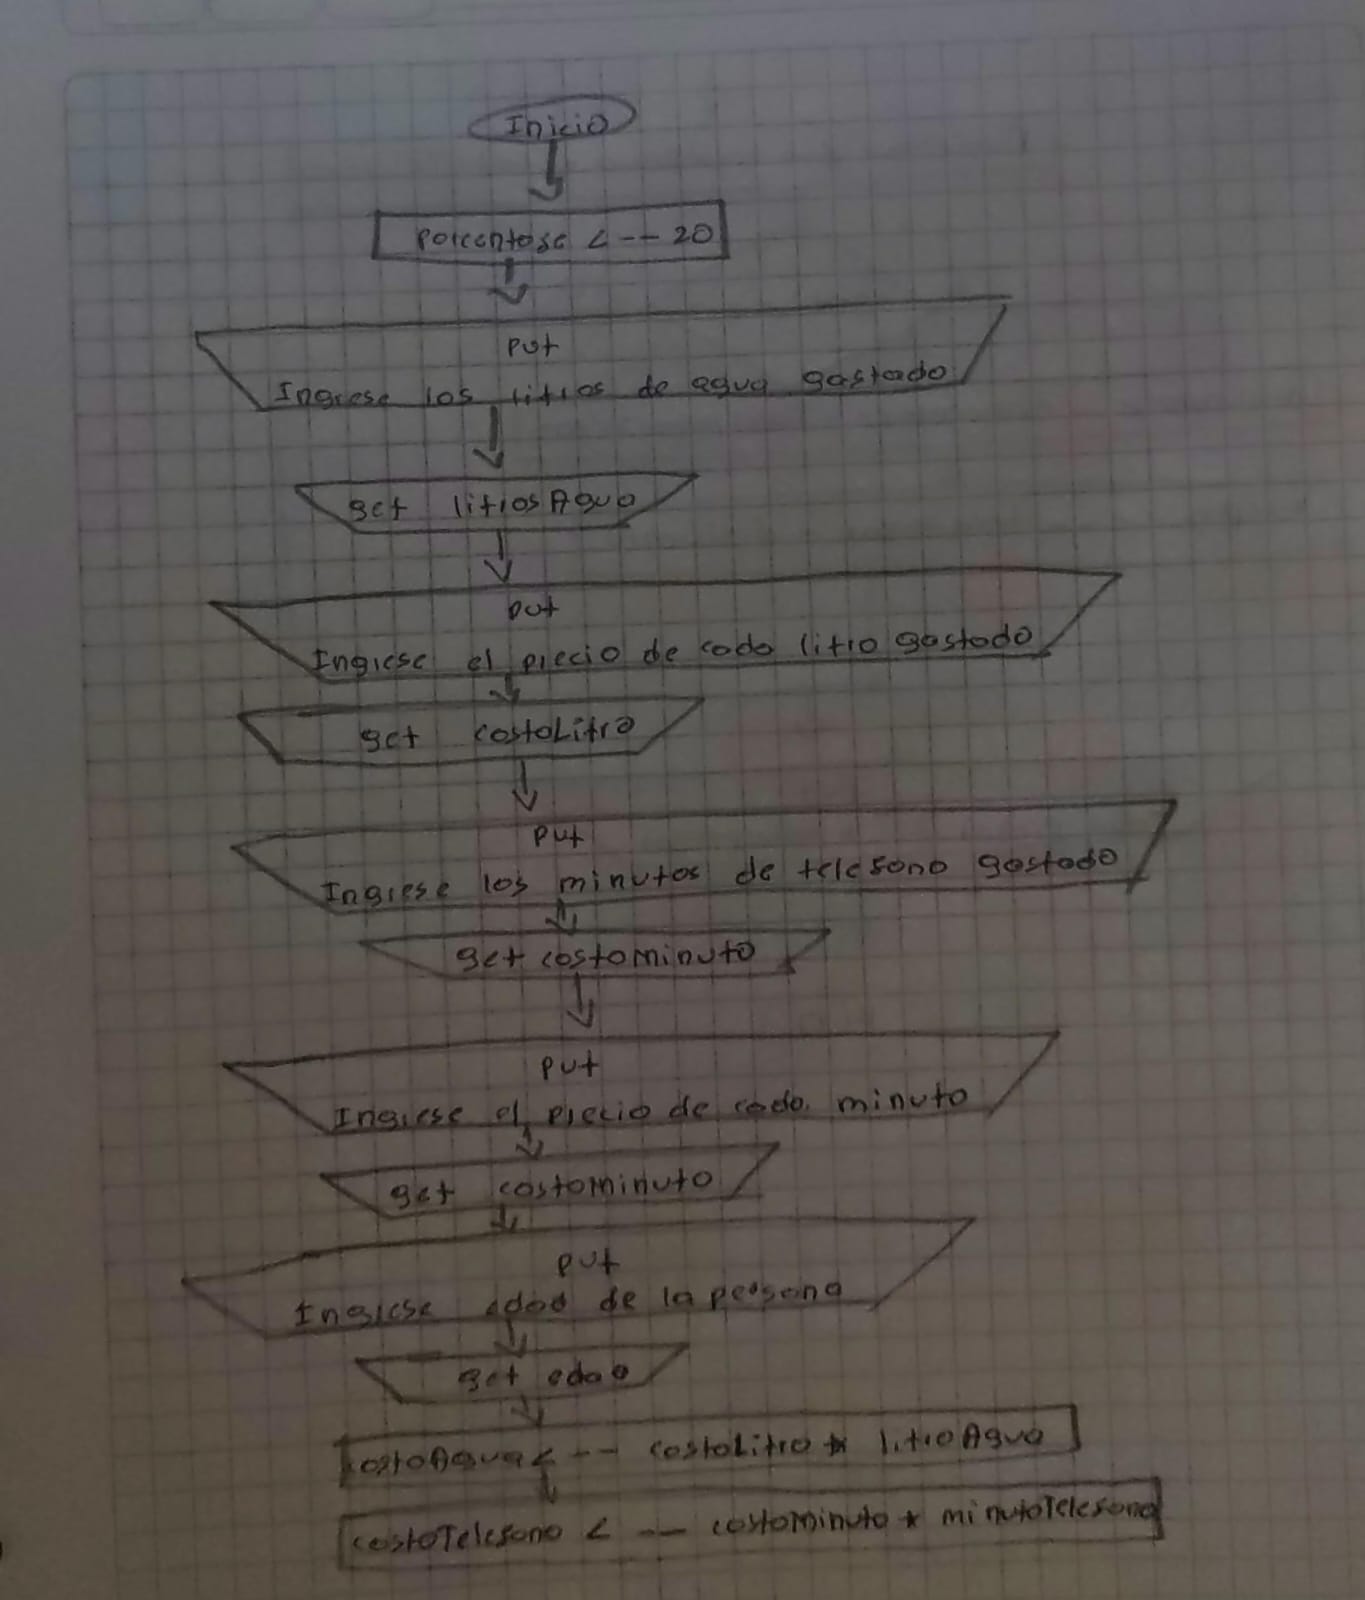 Inicio
Porcentaje <-- 20
put
Ingrese los litros de agua gastado
get litrosAgua
put
Ingrese el precio de cada litro gastado
get costoLitro
put
Ingrese los minutos de telefono gastado
get costominuto
put
Ingrese el precio de cada minuto
get costominuto
put
Ingrese edad de la persona
get edad
costoAgua <-- costoLitro * litroAgua
costoTelefono <-- costoMinuto * minutoTelefono